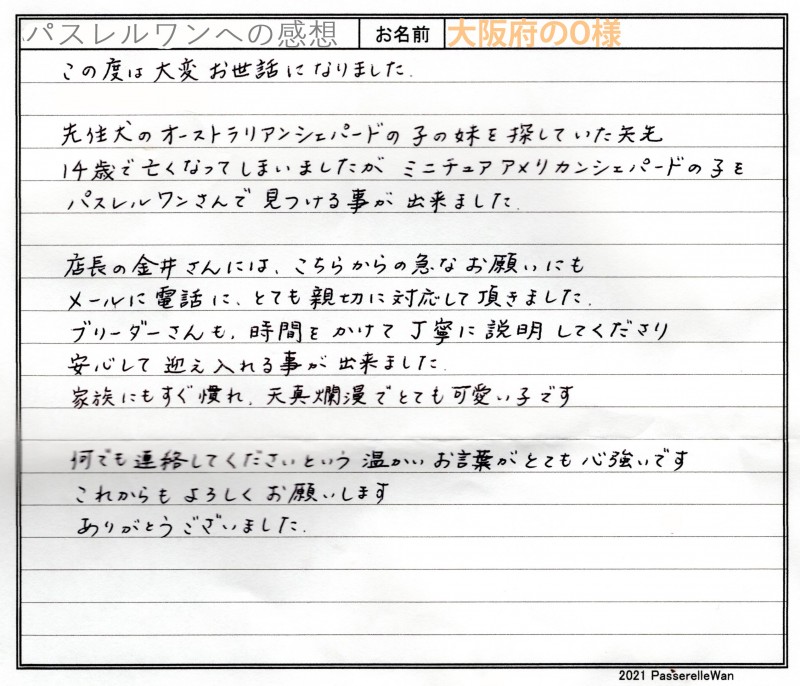 パスレルワンへの感想 お名前 大阪府のO様
この度は大変お世話になりました.
先住犬のオーストラリアンシェパードの子の妹を探していた矢先
14歳で亡くなってしまいましたが ミニチュアアメリカンシェパードの子を
パスレルワンさんで見つける事が出来ました.
店長の金井さんには、こちらからの急なお願いにも
メールに電話に、とても親切に対応して頂きました.
ブリーダーさんも、時間をかけて丁寧に説明してくださり
安心して迎え入れる事が出来ました.
家族にもすぐ慣れ、天真爛漫でとても可愛い子です
何でも連絡してくださいという温かいお言葉がとても心強いです
これからもよろしくお願いします
ありがとうございました.
2021 PasserelleWan